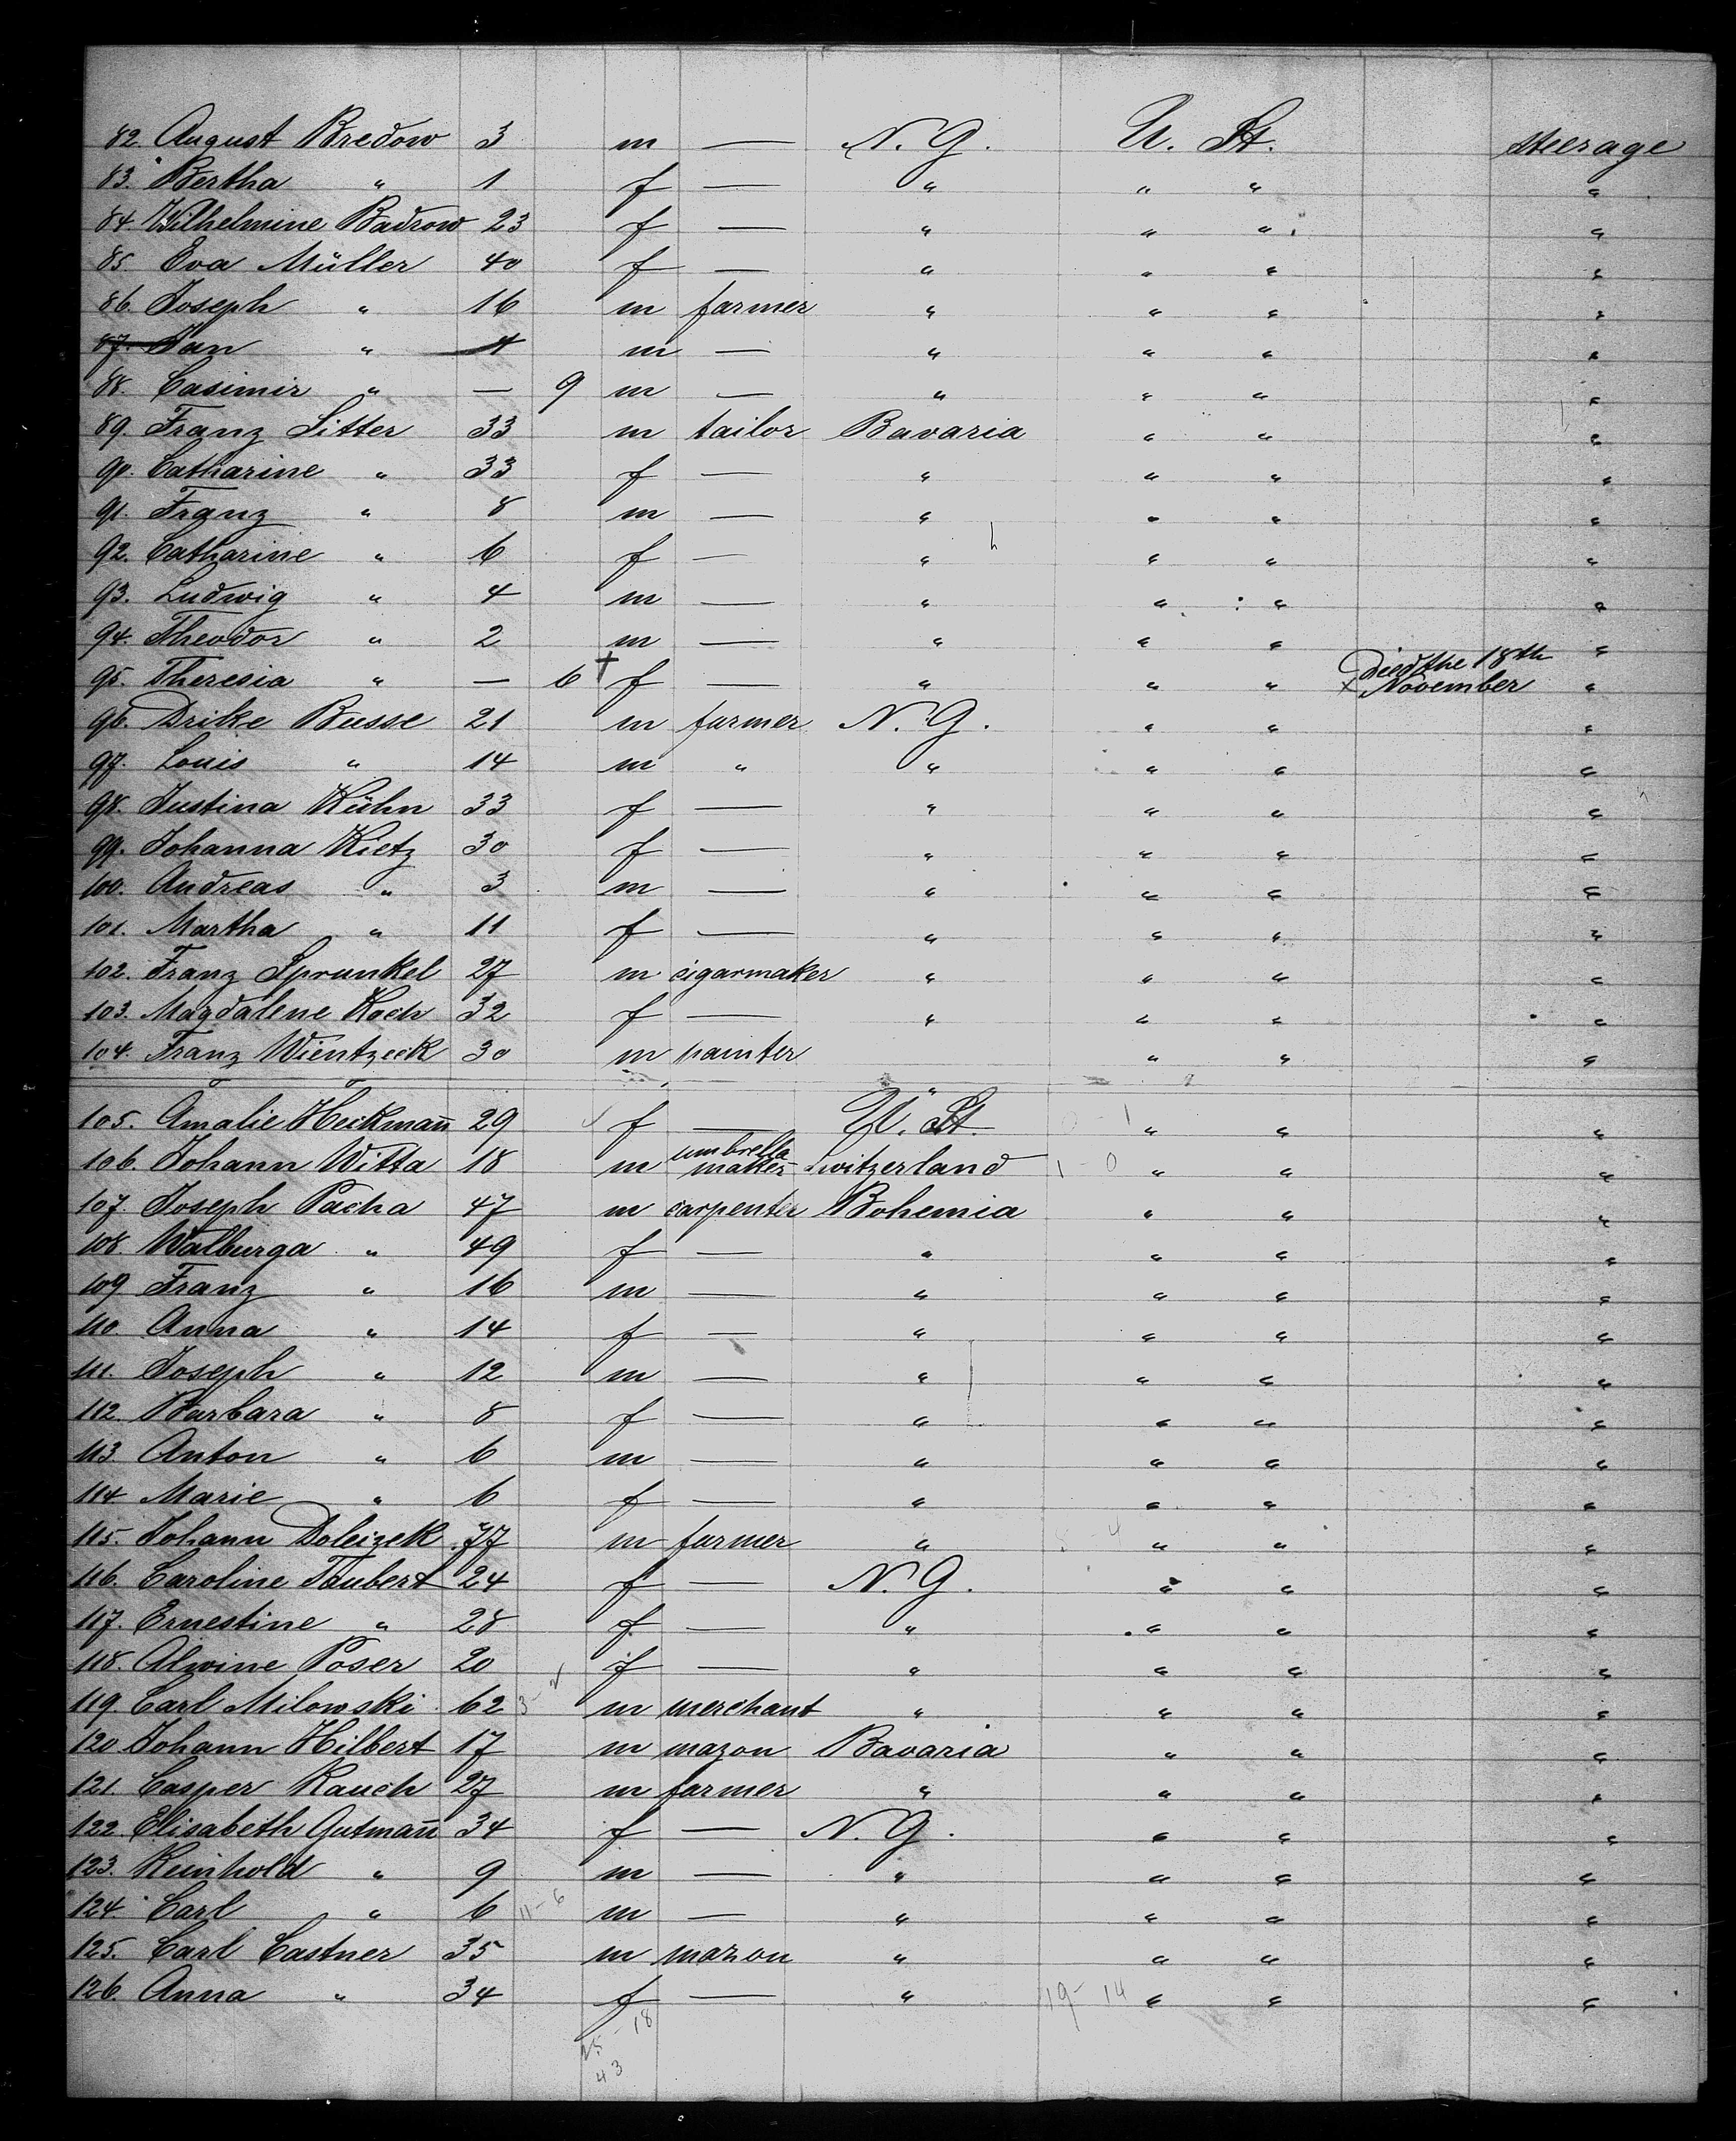 82. August Bredow 3 m — N. G. U. St. steerage
83. Bertha " 1 f — " " " "
84. Wilhelmine Badrow 23 f — " " " "
85. Eva Müller 40 f — " " " "
86. Joseph " 16 m farmer " " " "
87. Jan " 4 m — " " " "
88. Casimir " — 9 m — " " " "
89. Franz Sitter 33 m tailor Bavaria " " "
90. Catharine " 33 f — " " " "
91. Franz " 8 m — " " " "
92. Catharine " 6 f — " " " "
93. Ludwig " 4 m — " " " "
94. Theodor " 2 m — " " " "
95. Theresia " — 6 † f — " " " Died the 18th November "
96. Drike Busse 21 m farmer N. G. " " "
97. Louis " 14 m " " " " "
98. Justina Kühn 33 f — " " " "
99. Johanna Kietz 30 f — " " " "
100. Andreas " 3 m — " " " "
101. Martha " 11 f — " " " "
102. Franz Sprunkel 27 m cigarmaker " " " "
103. Magdalene Koch 32 f — " " " "
104. Franz Wientzeck 30 m painter " " " "
105. Amalie Heckmañ 29 f — U. St. 0 - 1 " " "
106. Johann Witta 18 m umbrella maker Switzerland 1 - 0 " " "
107. Joseph Pacha 47 m carpenter Bohemia " " "
108. Walburga " 49 f — " " " "
109 Franz " 16 m — " " " "
110. Anna " 14 f — " " " "
111. Joseph " 12 m — " " " "
112. Barbara " 8 f — " " " "
113. Anton " 6 m — " " " "
114 Marie " 6 f — " " " "
115. Johann Doleizek 77 m farmer " " " "
116. Caroline Taubert 24 f — N. G. " " "
117. Ernestine " 28 f — " " " "
118. Alwine Poser 20 f — " " " "
119. Carl Milowski 62 m merchant " " " "
120 Johann Hilbert 17 m mazon Bavaria " " "
121. Casper Rauch 27 m farmer " " " "
122 Elisabeth Gutmañ 34 f — N. G. " " "
123. Reinhold " 9 m — " " " "
124. Carl " 6 11-6 m — " " " "
125. Carl Castner 35 m mazon " " " "
126. Anna " 34 f — " 19- 14 " " "
25 - 18
43